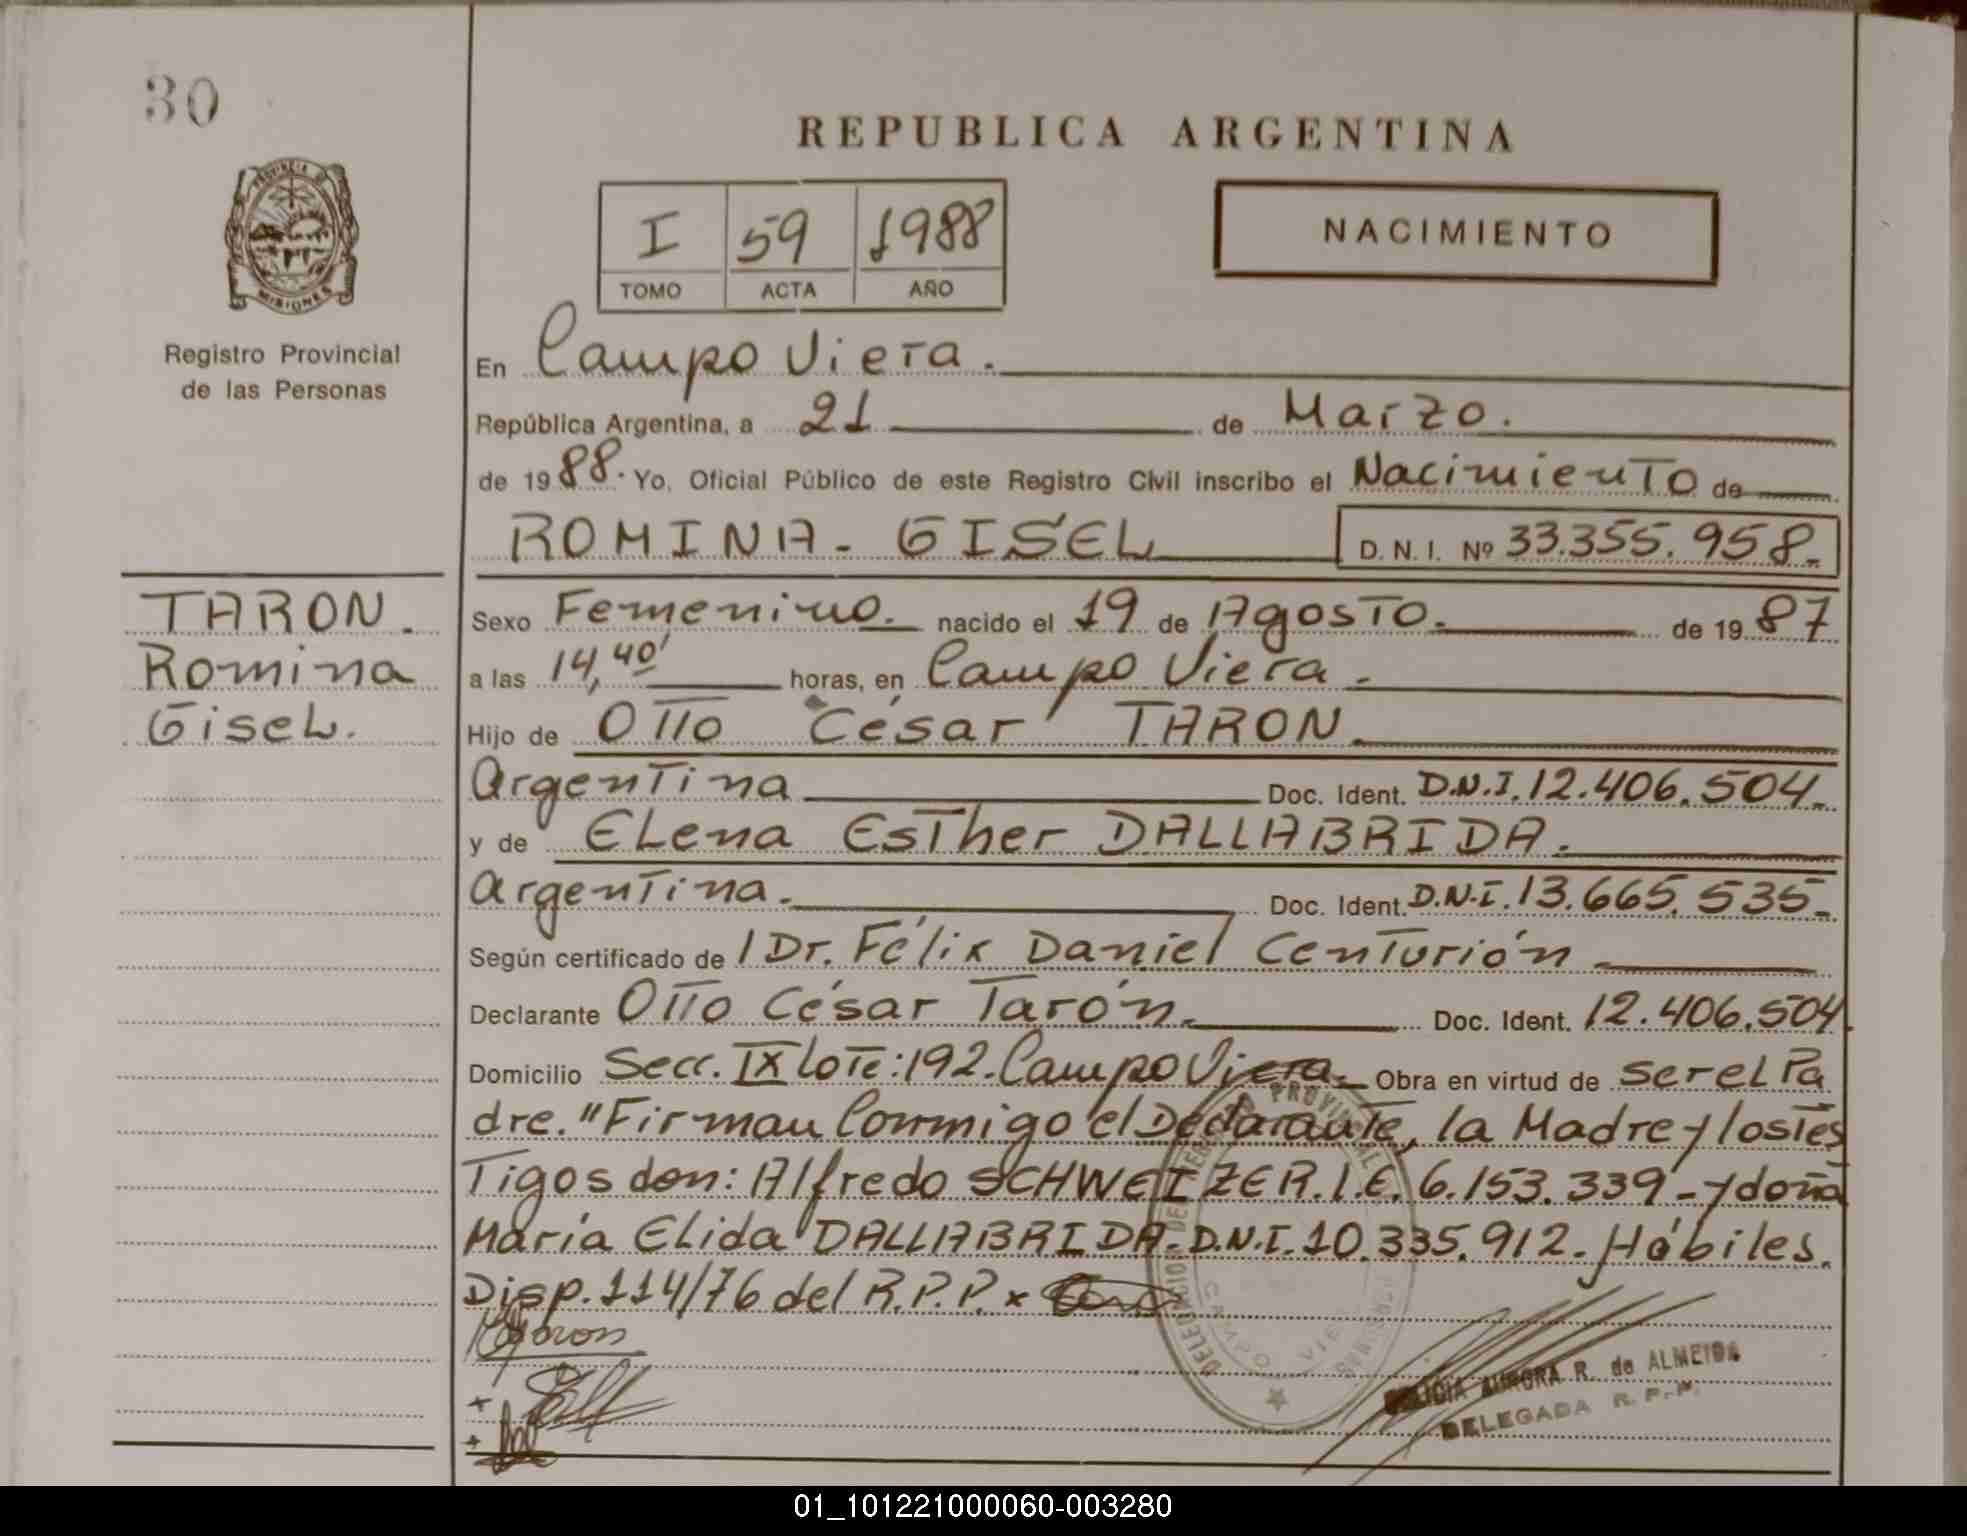 30
REPUBLICA ARGENTINA
I 59 1988
TOMO ACTA AÑO
NACIMIENTO
PROVINCIA DE
MISIONES
Registro Provincial
de las Personas
En Campo Viera.
República Argentina, a 21 de Marzo.
de 1988. Yo, Oficial Público de este Registro Civil inscribo el Nacimiento de
ROMINA - GISEL D. N. I. Nº 33.355.958.-
TARON.
Romina
Gisel.
Sexo Femenino. nacido el 19 de Agosto. de 1987
a las 14,40' horas, en Campo Viera.
Hijo de Otto César TARON.
Argentina Doc. Ident. D.N.I. 12.406.504.
y de Elena Esther DALLABRIDA.
Argentina. Doc. Ident. D.N.I. 13.665.535-
Según certificado de l Dr. Félix Daniel Centurión
Declarante Otto César Tarón. Doc. Ident. 12.406.504.
Domicilio Secc. IX lote: 192. Campo Viera. Obra en virtud de ser el Pa
dre. "Firman Conmigo el Declarante, la Madre y los tes
tigos don: Alfredo SCHWEIZER. L.E. 6.153.339 - y doña
María Elida DALLABRIDA. D.N.I. 10.335.912. Hábiles.
Disp. 114/76 del R.P.P. x
DELEGACION DE PROVINCIAL
CAMPO VIE
MISIONES
AURORA R. de ALMEIDA
DELEGADA R. P. P.
01_101221000060-003280